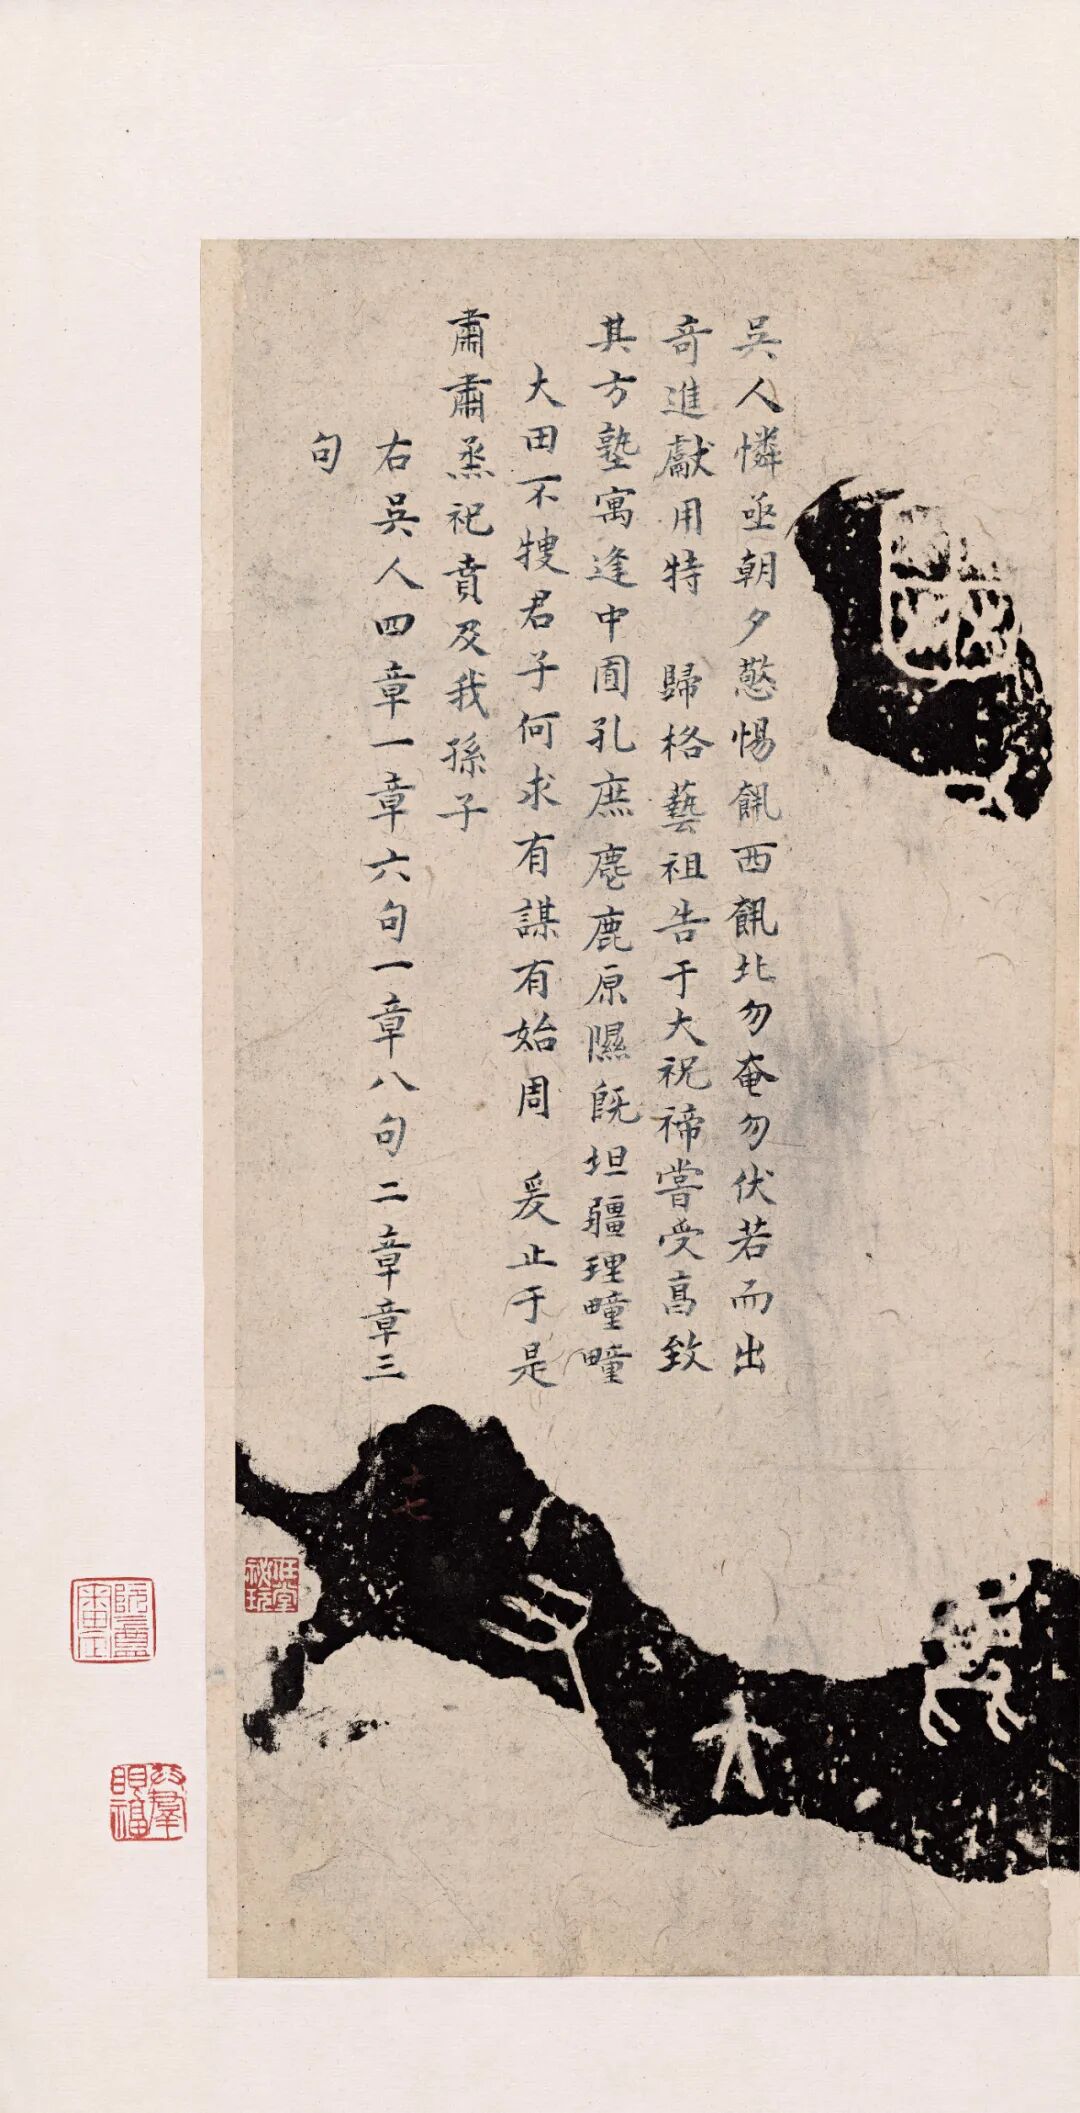 吳人憐亟朝夕憼惕䬤西䬤北勿奄勿伏若而出
奇進獻用特 歸格藝祖告于大祝禘嘗受享致
其方塾寓逢中囿孔庶麀鹿原隰既坦疆理畽畽
大田不㮴君子何求有謀有始周 爰止于是
肅肅烝祀賁及我孫子
右吳人四章一章六句一章八句二章章三
句
十七
任堂
祕玩